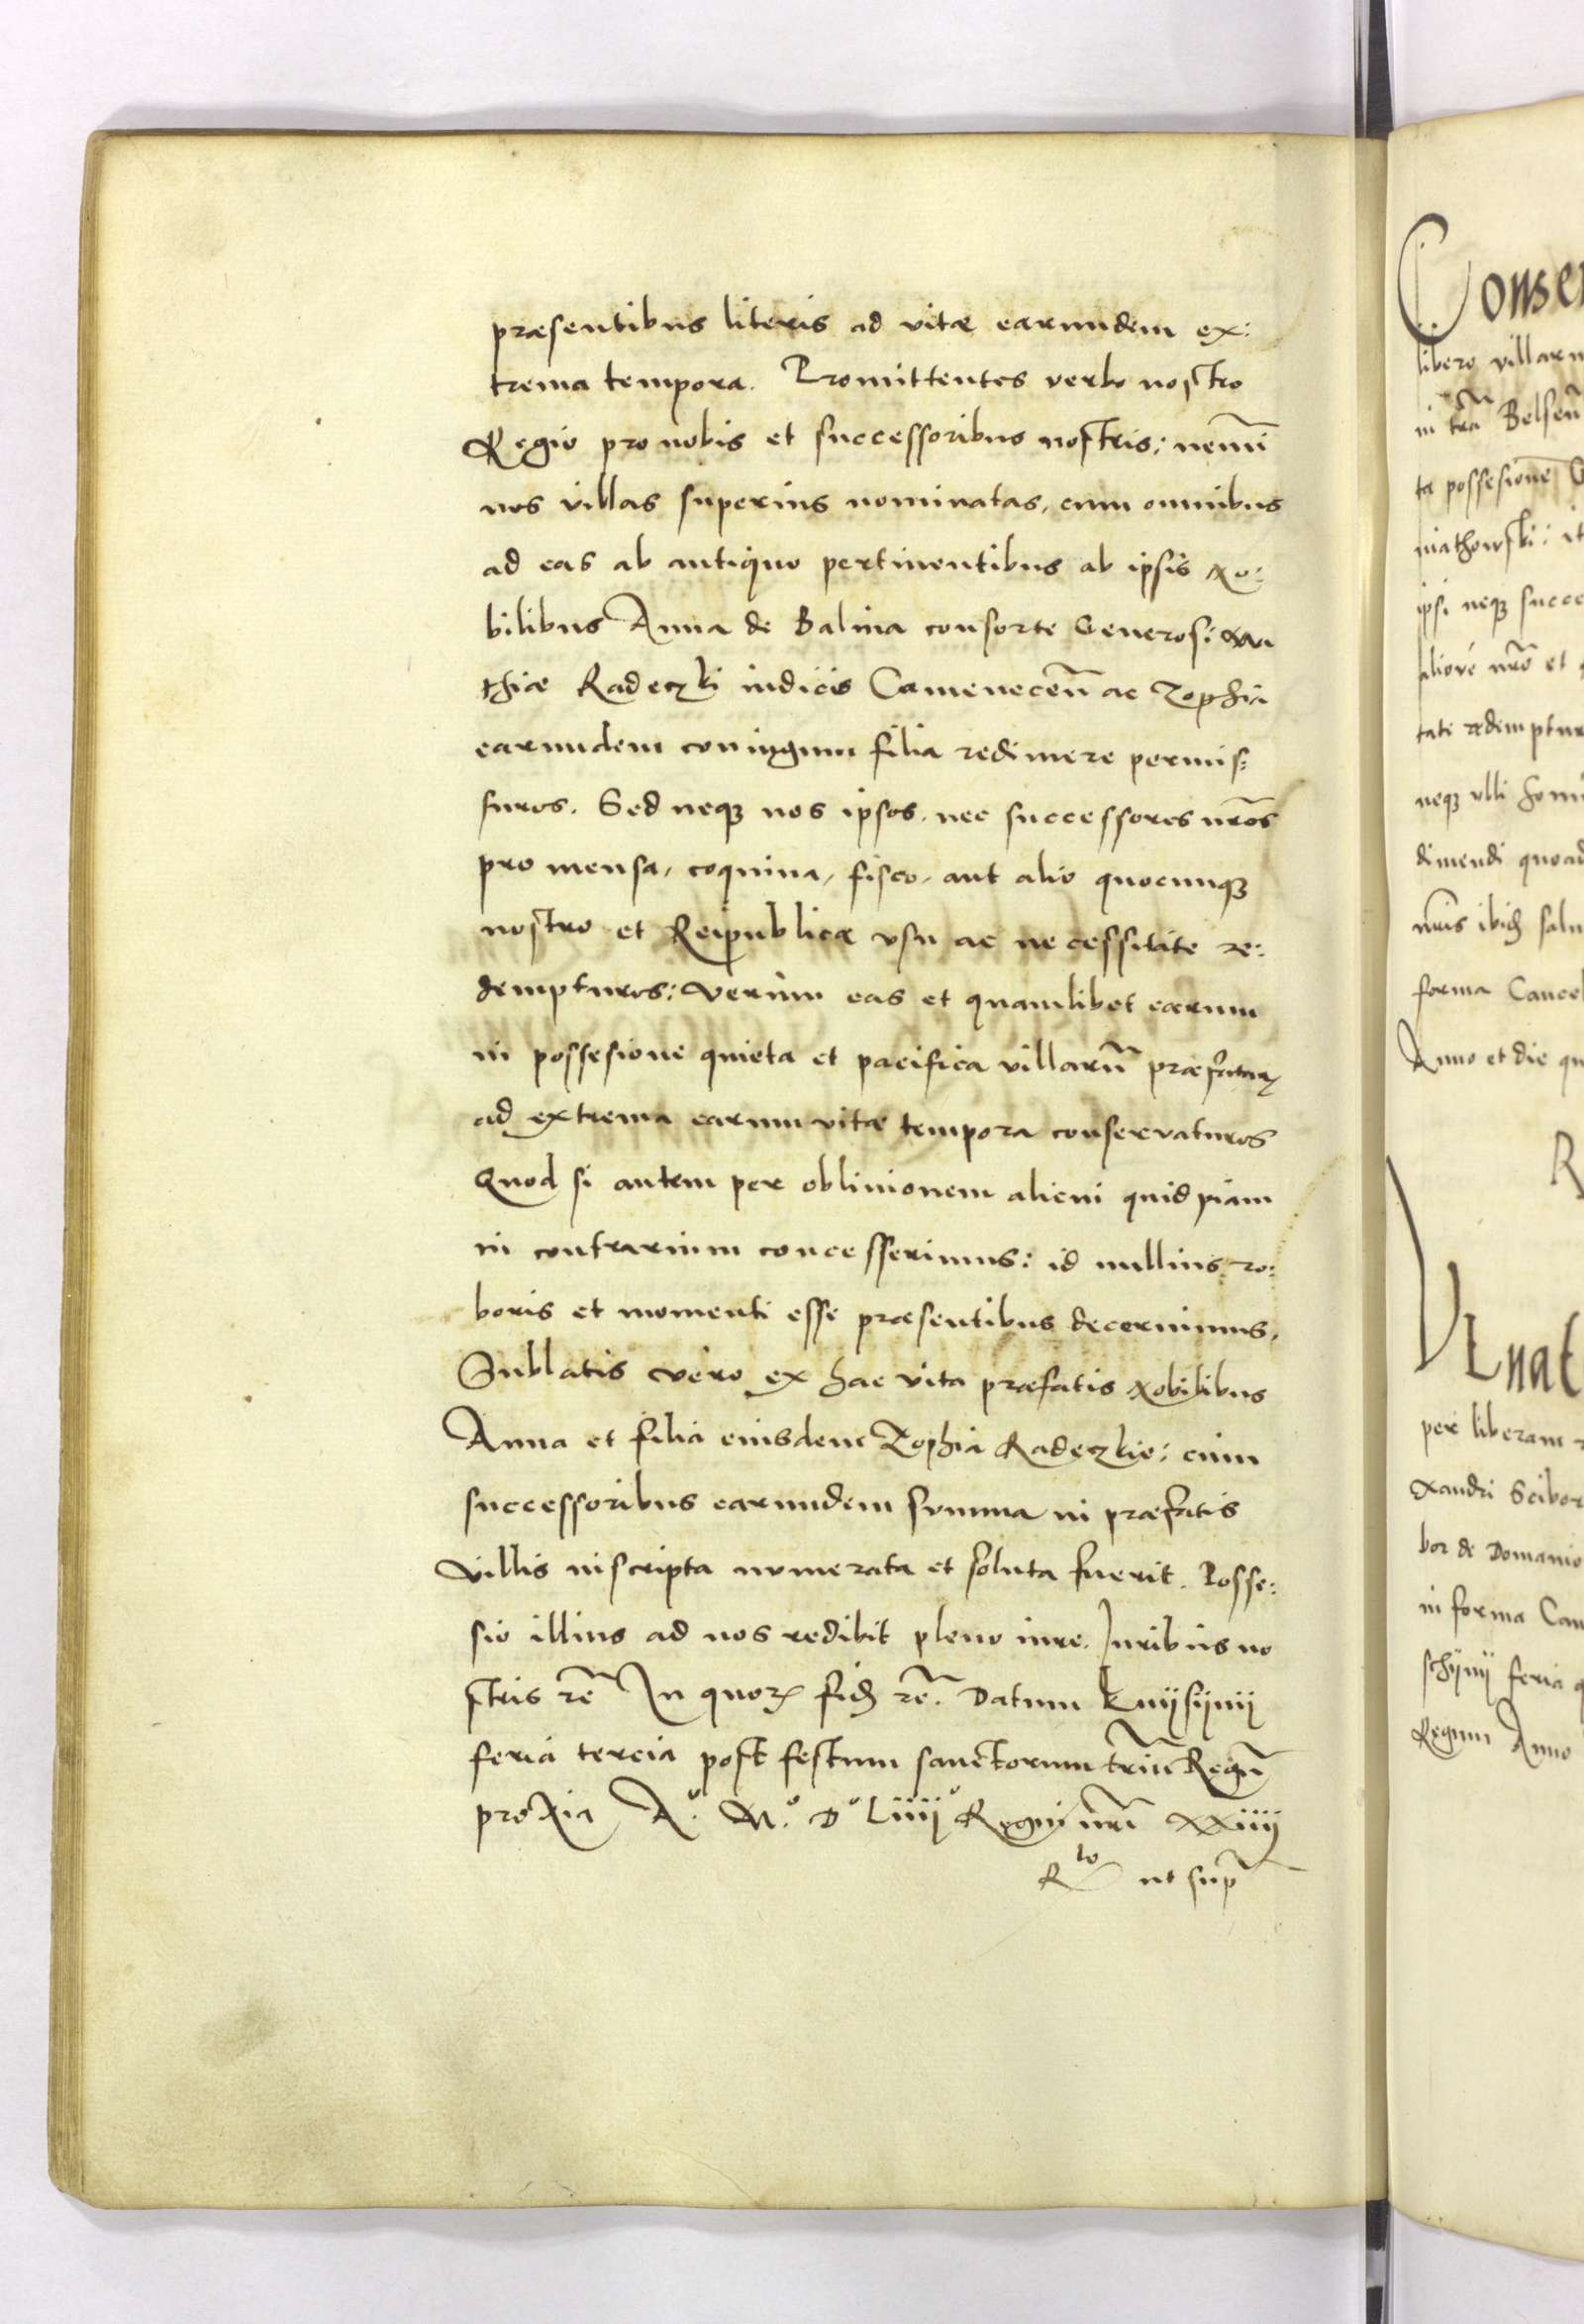 præsentibus literis ad vitæ earundem ex:
trema tempora. Promittentes verbo nostro
Regio pro nobis et successoribus nostris: nemī
nos villas superius nominatas, cum omnibus
ad eas ab antiquo pertinentibus ab ipsis No:
bilibus Anna de Balina consorte Generosi Ma
thiæ Radeczki iudicis Camenecen̄ ac Zophia
earundem coniugum filia redimere permis:
suros. Sed neqꝫ nos ipsos, nec successores nr̄os
pro mensa, coquina, fisco, aut alio quocunqꝫ
nostro et Reipublicæ vsu ac necessitate re:
dempturos: Verum eas et quamlibet earum
in possesione quieta et pacifica villarū præfataꝝ
ad extrema earum vitæ tempora conservaturos
Quod si autem per oblivionem alicui quidpiam
in contrarium concesserimus: id nullius ro:
boris et momenti esse præsentibus decernimus.
Sublatis vero ex hac vita præfatis Nobilibus
Anna et filia eiusdem Zophia Radeczkie: cum
successoribus earundem summa in præfatis
villis inscripta numerata et soluta fuerit. Posse:
sio illius ad nos redibit pleno iure. Iuribus no
stris rc̄ In quoꝝ fidē rc̄. Datum Knijsijnij
feria tercia post festum sanctorum triū Regū
proxia Aº. Mº. Dº Liiijº Regnj nr̄i xxiiij
R^to ut sup̄
Conse
libero villaru
in tr̄a Belsen̄
ta possesione G
niathowski: it
ipsi neqꝫ succe
aliore nr̄o et
tati redemptur
neqꝫ vlli homi
dimendi quoad
nr̄is ibid̄ salu
forma Cancel
Anno et die qu
R
Vnat
per liberam r
xandri Scibor
bor de Domanio
in forma Can
schijnij feria q
Regum Anno